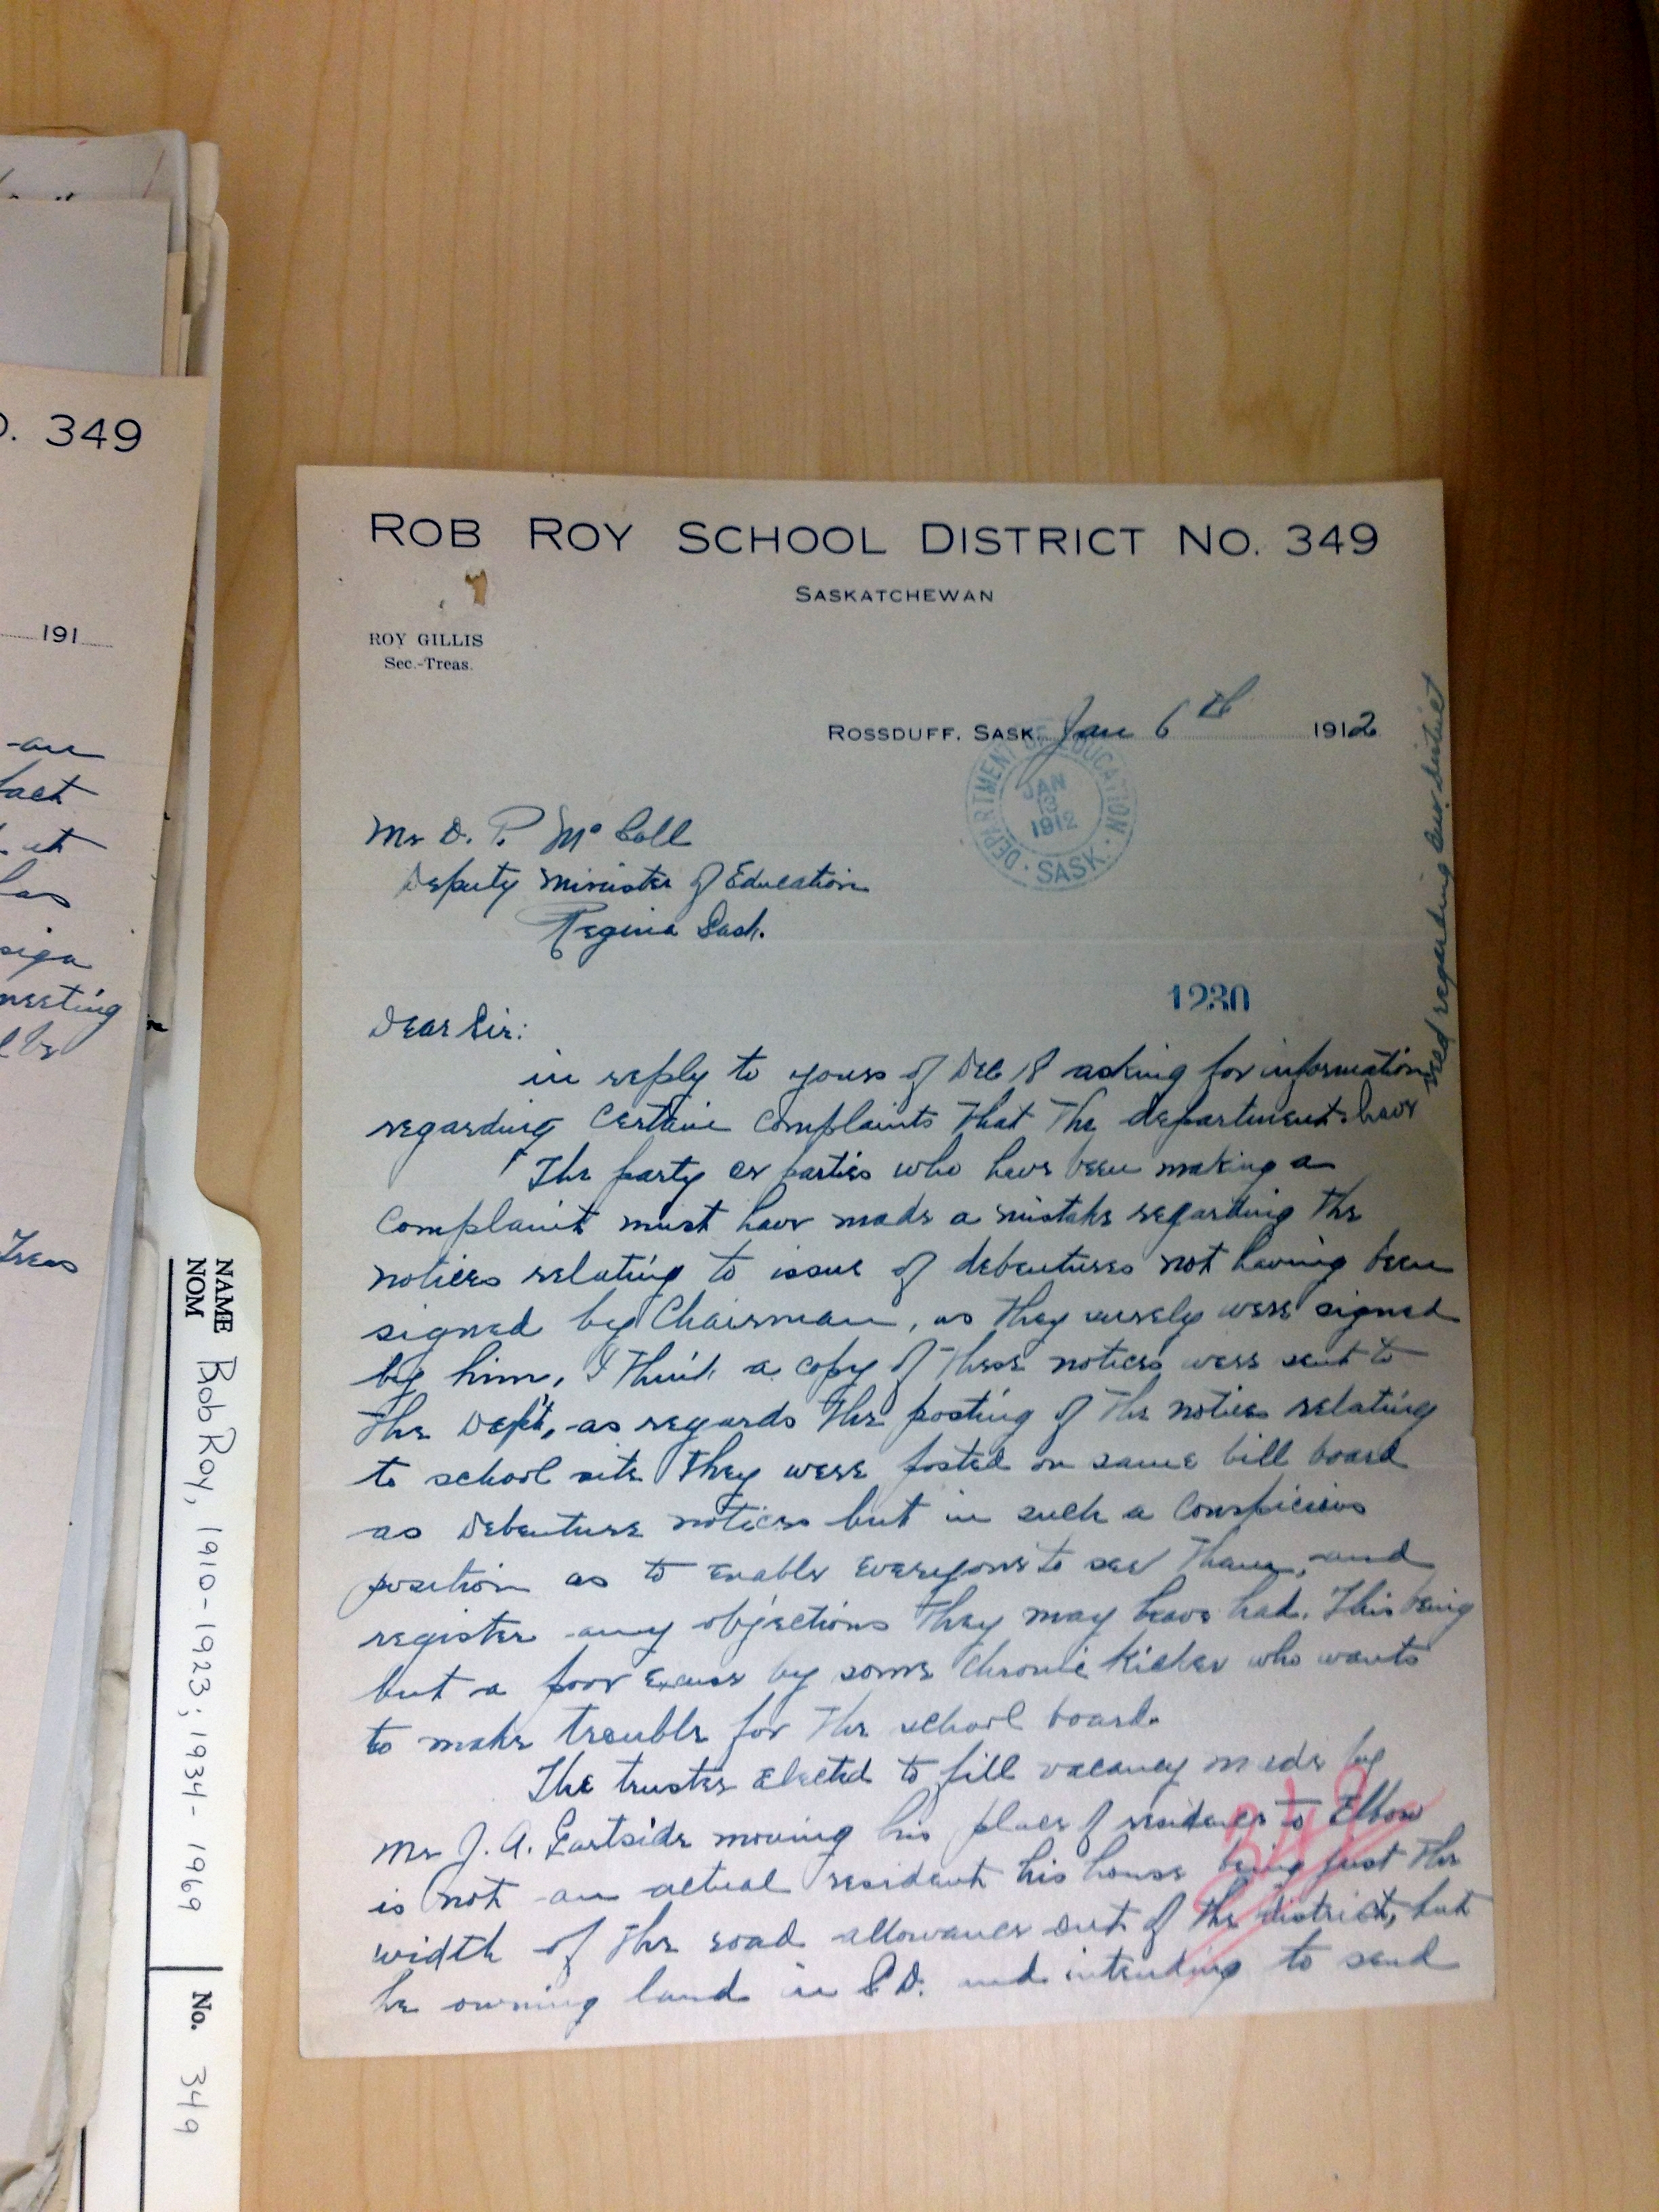 O. 349
191
an
fact
at
has
sign
meeting
Treas
ROB ROY SCHOOL DISTRICT NO. 349
SASKATCHEWAN
ROY GILLIS
Sec.-Treas.
ROSSDUFF, SASK. Jan 6th 1912
DEPARTMENT OF EDUCATION
JAN
1912
SASK.
Mr D. P. McColl
Deputy Minister of Education
Regina Sask.
1230
Dear Sir:
in reply to yours of Dec 18 asking for information
regarding certain complaints that the department have
rec'd regarding our district
The party or parties who have been making a
complaint must have made a mistake regarding the
notices relating to issue of debentures not having been
signed by Chairman, as they surely were signed
by him, I think a copy of these notices were sent to
the Dept, as regards the posting of the notices relating
to school site they were posted on same bill board
as Debenture notices but in such a conspicious
position as to enable everyone to see them, and
register any objections they may have had. This being
but a poor excuse by some chronic kicker who wants
to make trouble for the school board.
The trustee elected to fill vacancy made by
Mr J. A. moving his place of residence to Elbow
is not an actual resident his house being just the
width of the road allowance out of the district, but
he owning land in S.D. and intending to send
349
NAME
NOM
Rob Roy, 1910-1923; 1934-1969
No. 349